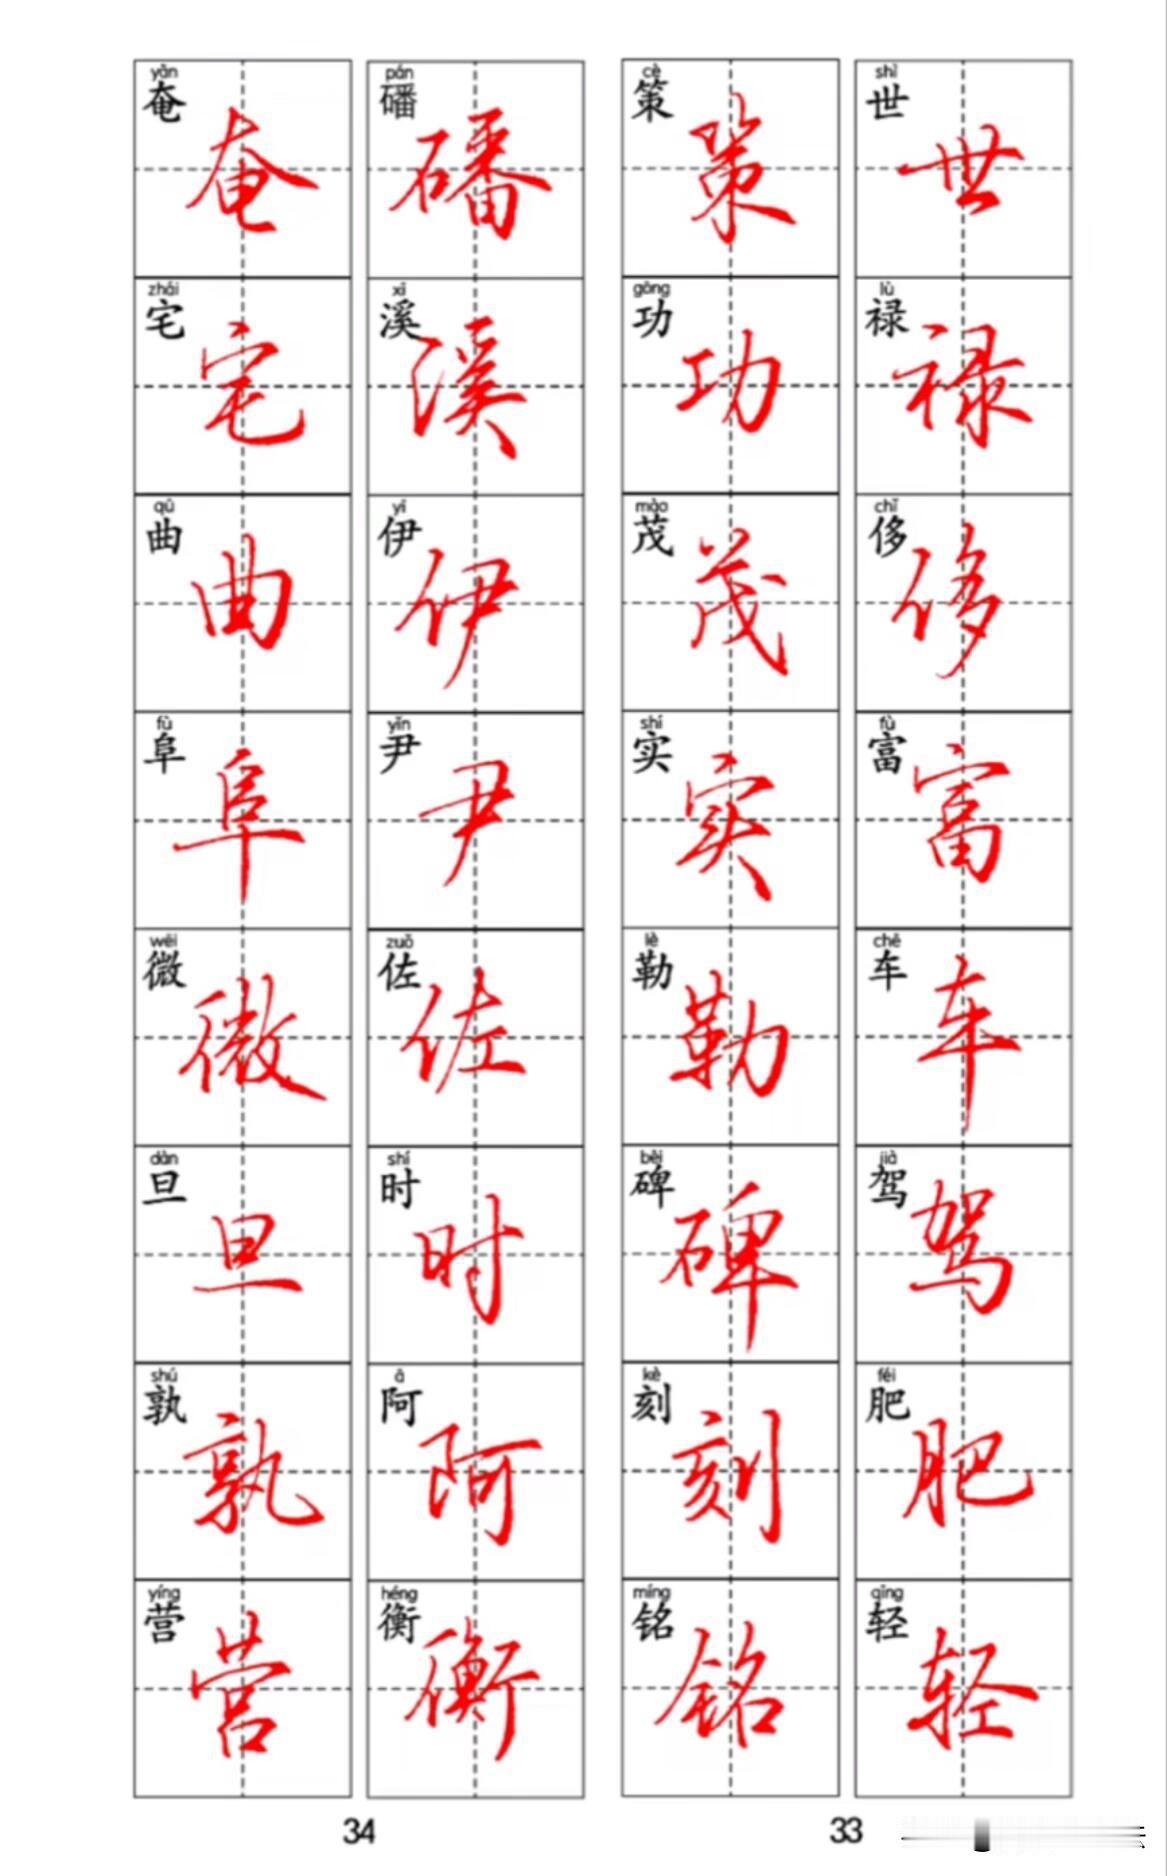 shì 世 世
lù 禄 禄
chǐ 侈 侈
fù 富 富
chē 车 车
jià 驾 驾
féi 肥 肥
qīng 轻 轻
cè 策 策
gōng 功 功
mào 茂 茂
shí 实 实
lè 勒 勒
bēi 碑 碑
kè 刻 刻
míng 铭 铭
33
pán 磻 磻
xī 溪 溪
yī 伊 伊
yǐn 尹 尹
zuǒ 佐 佐
shí 时 时
ā 阿 阿
héng 衡 衡
yǎn 奄 奄
zhái 宅 宅
qū 曲 曲
fù 阜 阜
wēi 微 微
dàn 旦 旦
shú 孰 孰
yíng 营 营
34